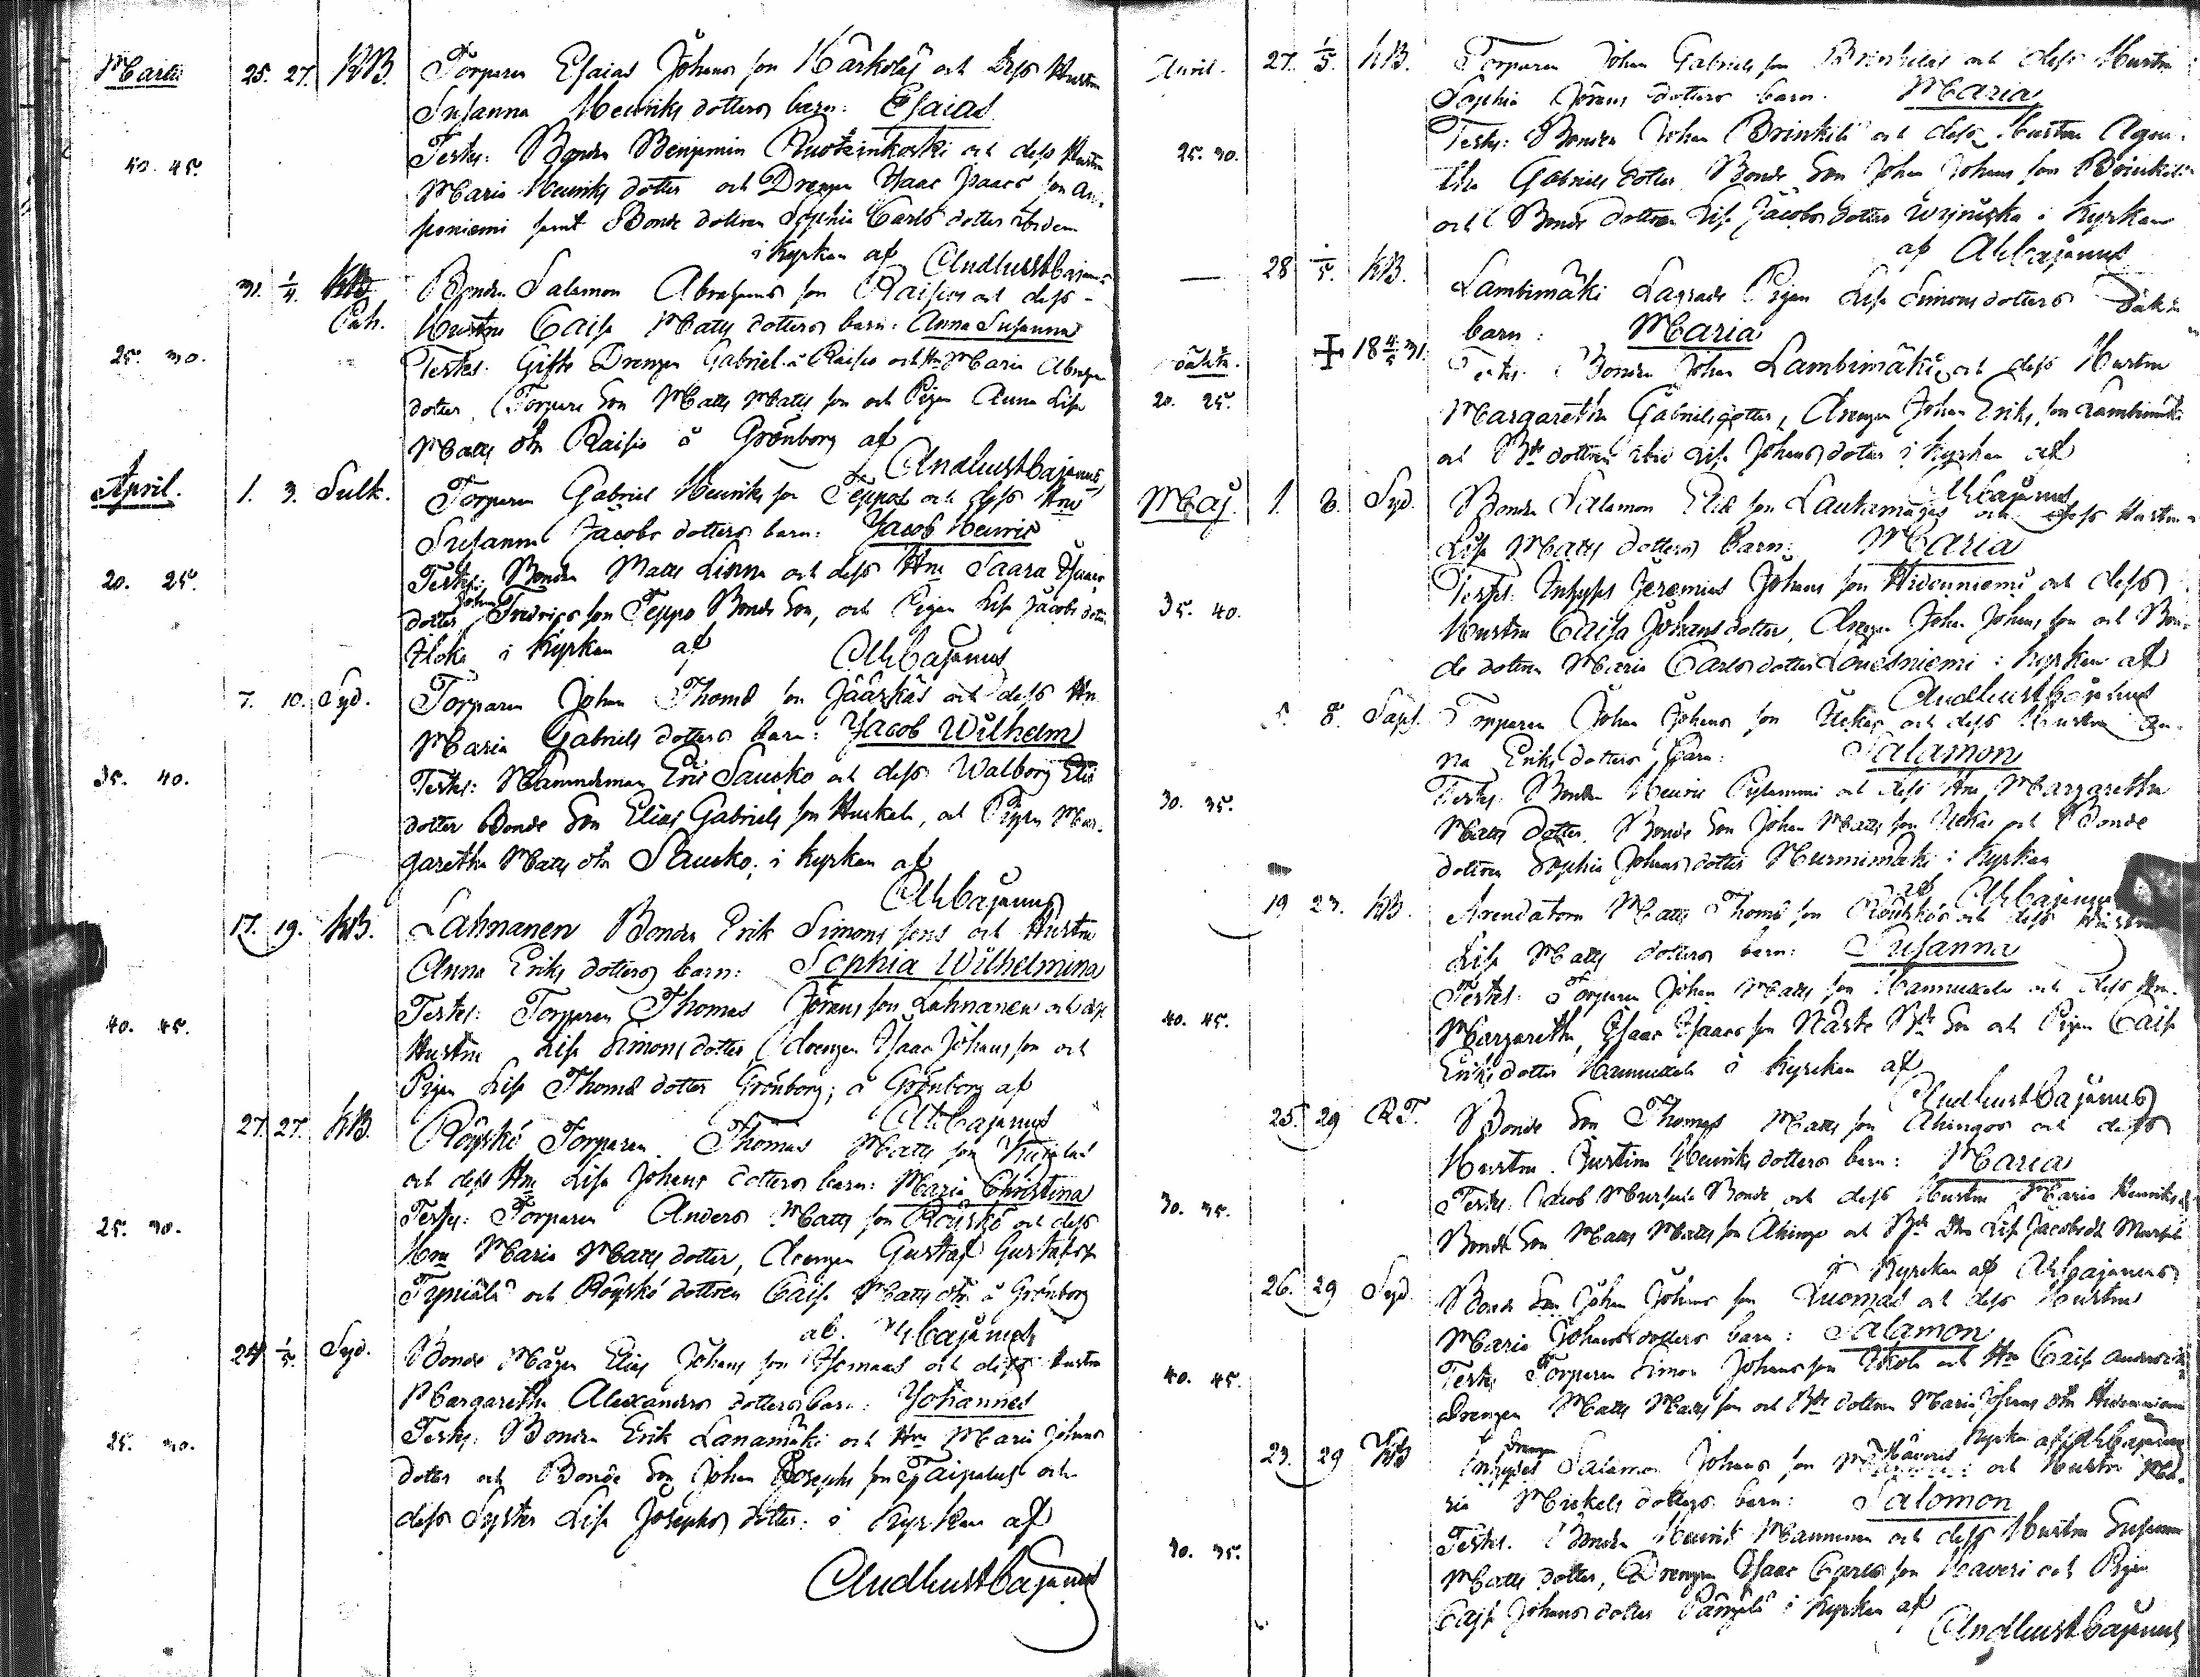 Martii 25. 27. KB. Torparen Esaias Johans son Karkolas och dess Hustru
Susanna Henriks dotters barn: Esaias
Testes: Bonden Benjamin Ruotzinkoski och dess Hustru
40. 45. Maria Henriks dotter och Drengen Isaac Isaacs son
samt Bonde dottren Sophia Carls dotter ibidem
i kyrkan af And Gust Cajanus
31. 1/4. Bonden Salomon Abrahams son Raisios och dess
Hustru Caisa Matts dotters barn: Anna Susanna
25. 30. Testes: Gifte Drengen Gabriel Raisio och Hn Maria Abraham
dotter, Torpare Son Matts Matts son och Pigan Anna Lisa
Matts dtr Raisio å Grönborg af
And Gust Cajanus
April. 1. 3. Sulk. Torparen Gabriel Henriks son Seppos och dess Hnu
Susanna Jacobs dotters barn: Jacob Henric
20. 25. Testes: Bonden Matts Linna och dess Hnu Saara Isaacs
dotter, Johan Fredrics son Seppo Bonde Son, och Pigan Lisa Jacobs dotter
i kyrkan af AG Cajanus
7. 10. Syd. Torparen Johan Thomæ son Jääskäs och dess Hn
Maria Gabriels dotters barn: Jacob Wilhelm
35. 40. Testes: Nämndeman Eric Sausko och dess Walborg Elis
dotter Bonde Son Elias Gabriels son Huskela, och Pigan Mar-
garetha Matts dtr Sausko; i kyrkan af
AG Cajanus
17. 19. KB. Lahnanen Bonden Erik Simons sons och Hustru
Anna Eriks dotters barn: Sophia Wilhelmina
40. 45. Testes: Torparen Thomas Jörans son Lahnanen och dess
Hustru Lisa Simons dotter, Drengen Isaac Johans son och
Pigan Lisa Thomæ dotter Grönborg; å Grönborg af
AG Cajanus
27. 27. KB. Röyskö Torparen Thomas Matts son
och dess Hnu Lisa Johans dotters barn: Maria Christina
25. 30. Testes: Torparen Anders Matts son Röyskö och dess
Hnu Maria Matts dotter, Drengen Gustaf Gustafs son
och Röyskö dottren Caisa Matts dtr å Grönborg
af. AG Cajanus
24 1/5. Syd. Bonde Mågen Elias Johans son och dess Hustru
Margaretha Alexanders dotters barn: Johannes
25. 30. Testes: Bonden Erik Lanamäki och Hnu Maria Johans
dotter och Bonde Son Johan Josephs son Taipalus och
dess Syster Lisa Josephs dotter: i kyrkan af
And Gust Cajanus
April. 27. 1/5. KB. Torparen Johan Gabriels son Brinkilas och dess Hustru
Sophia Jörans dotters barn. Maria
25. 30. Testes: Bonden Johan Brinkilä och dess Hustru Agne-
tha Gabriels dotter, Bonde Son Johan Johans son Brinkilä
och Bonde dottren Lisa Jacobs dotter i kyrkan
af AG Cajanus
28 1/5. KB. Lambimäki Lagrade Pigan Lisa Simons dotters
barn: Maria
oäkta. 18 4/5 31. Testes: Bonden Johan Lambimäki och dess Hustru
20. 25. Margaretha Gabriels dotter, Drengen Johan Eriks son Lambimäki
och Bde dottren ibid Lisa Johans dotter i kyrkan af
AG Cajanus
Maj. 1. 8. Syd. Bonden Salamon Elis son Lautamajas och dess Hustru
Lisa Matts dotters barn: Maria
Testes: Inhyses Jeremias Johans son Hidenniemi och dess
35. 40. Hustru Caisa Johans dotter, Drengen Johan Johans son och Bon-
de dottren Maria Carls dotter i kyrkan af
And Gust Cajanus
5. 8. Torparen Johan Johans son och dess Hustru An-
na Eriks dotters barn: Salamon
30. 35. Testes: Bonden Henric och dess Hnu Margaretha
Matts dotter, Bonde Son Johan Matts son och Bonde
dottren Sophia Johans dotter Nurmimäki i kyrkan
af AG Cajanus
19 23. KB. Arendatorn Matts Thomæ son Röyskös och dess Hustru
Lisa Matts dotters barn: Susanna
Testes: Torparen Johan Matts son Hannuxela och dess Hnu
40. 45. Margaretha, Isaac Isaacs son Bde Son och Pigan Caisa
Eriks dotter Hannuxela i kyrkan af
And Gust Cajanus
25. 29 RT. Bonde Son Thomas Matts son Ahingos och dess
Hustru Justina Henriks dotters barn: Maria
30. 35. Testes: Jacob Mursula Bonde och dess Hustru Maria Henriks dr
Bonde Son Matts Matts son Ahingo och Bde dtr Lisa Jacobs dtr Mursula
i Kyrkan af AG Cajanus
26. 29 Syd. Bonde Son Johan Johans son Luomas och dess Hustru
Maria Johans dotters barn: Salamon
40. 45. Testes Torparen Simon Johans son och Hn Caisa Anders dtr
Drengen Matts Matts son och Bde dottren Maria Johans dtr Hidenniemi
kyrkan af AG Cajanus
23. 29 KB Drengen Inhyses Salamon Johans son Haveris och Hustru Ma-
ria Mickels dotters barn: Salomon
30. 35. Testes. Bonden Henrik Mannunen och dess Hustru Susanna
Matts dotter, Drengen Isaac Carls son Haveri och Pigan
Caisa Johans dotter i kyrkan af
And Gust Cajanus